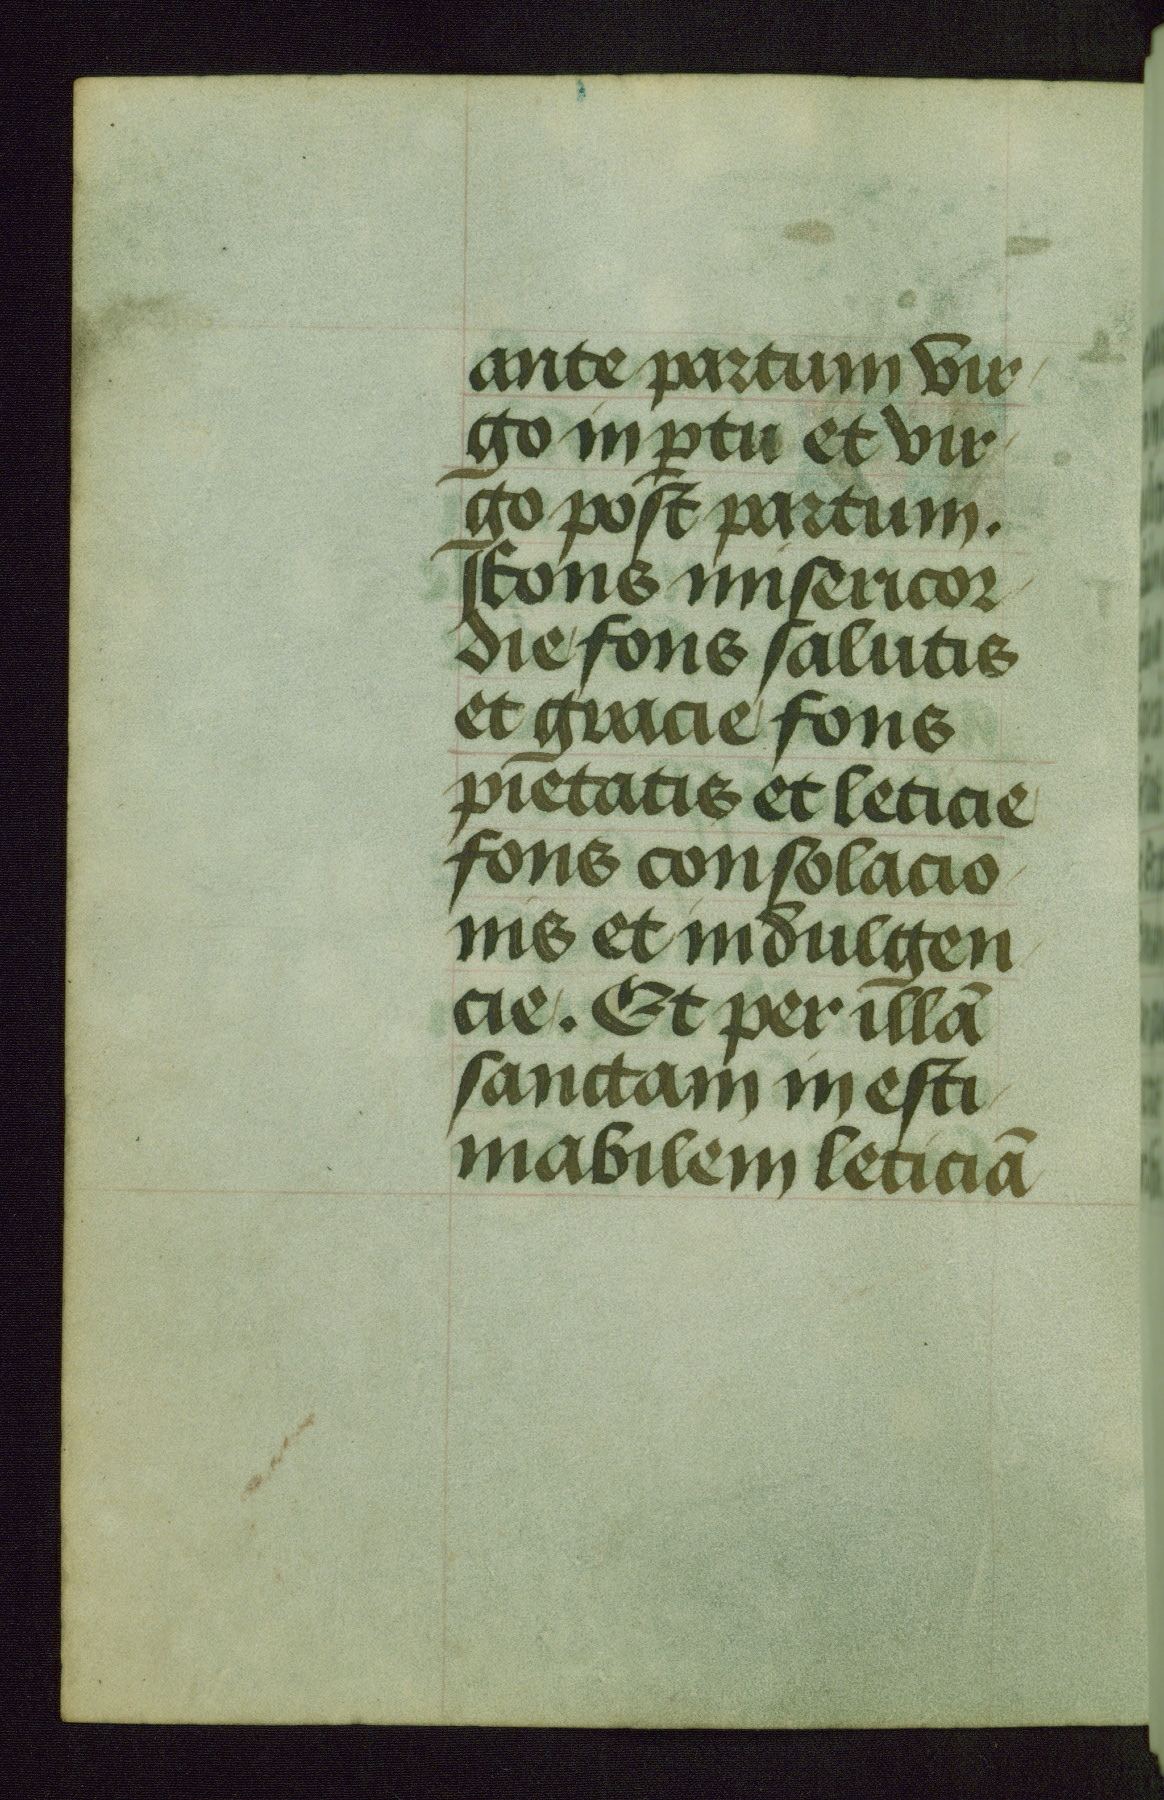 ante partum vir
go in ꝑtu et vir
go post partum.
Ffons misericor
die fons salutis
et gracie fons
pietatis et leticie
fons consolacio
nis et indulgen
cie. Et per illā
sanctam in esti
mabilem leticiā